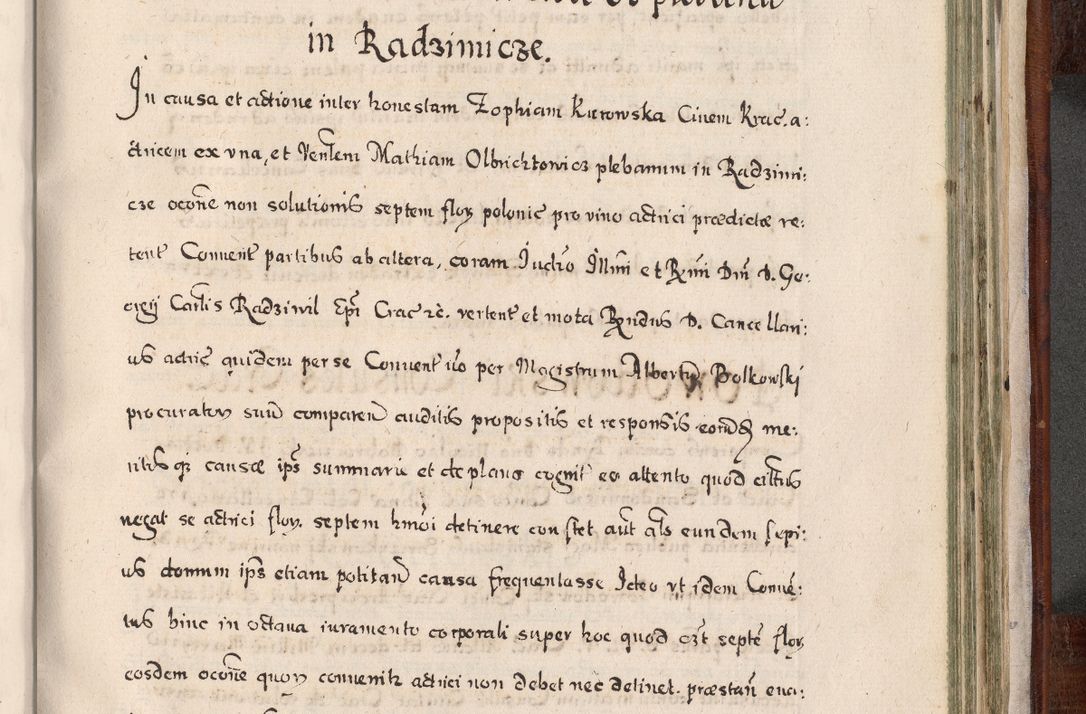 in Radzimicze.
In causa et actione inter honestam Zophiam Kurowska Ciuem Crac. a:
ctricem ex vna, et Venlem Mathiam Olbrichtowicz plebanum in Radzimi:
cze occone non solutionis septem flor polonic pro vino actrici prædictæ re:
tent Convent partibus ab altera, coram Judio Illmi et Rmi Dni D. Ge:
orgij Carlis Radziwil Epi Crac rc. vertent et mota Rndus D. Cancellari:
us actric quidem per se Convent vo per Magistrum Albertum Bolkowski
procuratorem suum comparen auditis propositis et responsis eorundem me:
ritis q causæ ips summarie et de plano cognit eo attento quod citatus
negat se actrici flor. septem hmoi detinere constet aut als eundem sepi:
us domum ips etiam potitan causa frequentasse Ideo vt idem Conve:
tus hinc in octaua iuramento corporali super hoc quod septe flor
eosdem occone quor convenit actrici non debet nec detinet. præstan eua: